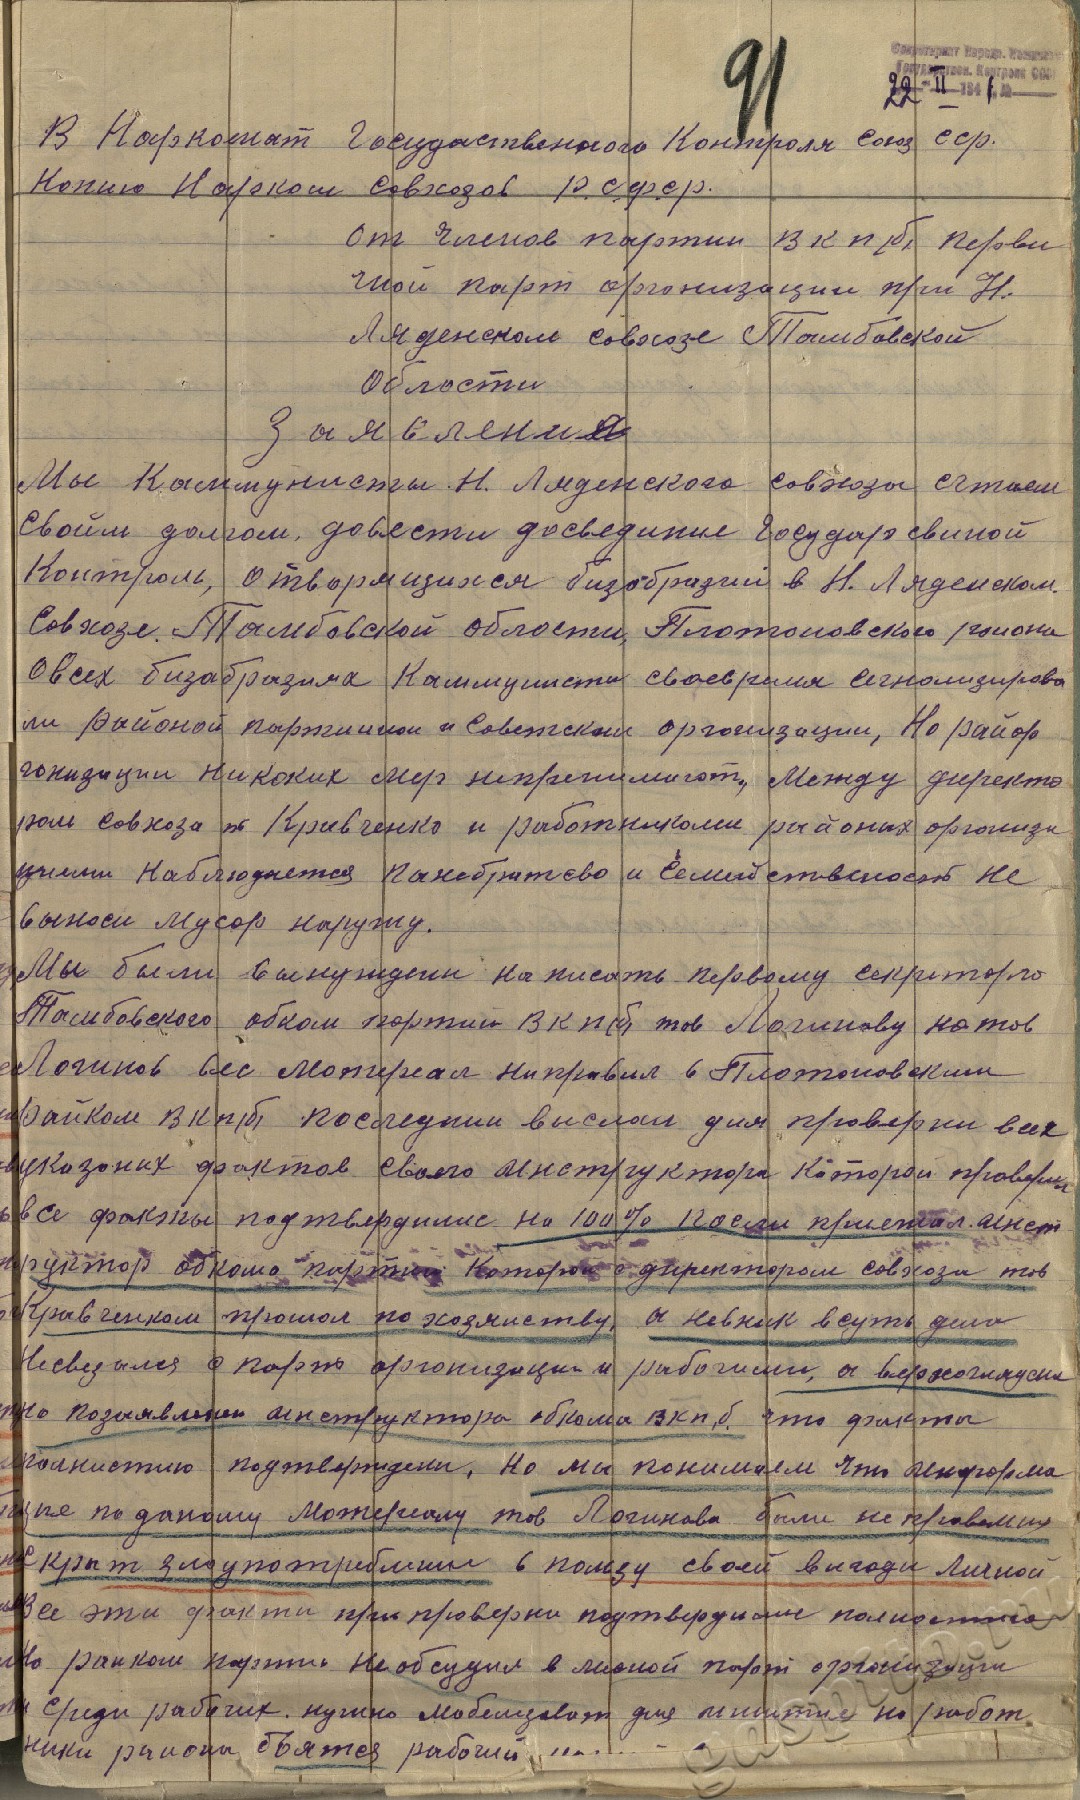 91
Секретариат Народн. Комиссар
Государствен. Контроля СССР
22 II 1941 г. №
В Наркомат Государственного Контроля Союз ССР.
Копию Нарком Совхозов Р.С.Ф.С.Р.
От членов партии ВКП(б) перви
чной парт организации при Н.
Ляденском совхозе Тамбовской
Области
Заявления
Мы Каммунисты Н. Ляденского совхоза считаем
своим долгом, довести досвединие Государсвиной
Контроль, отворящихся бизобразий в Н. Ляденском.
Совхозе. Тамбовской области, Платоновского района
Овсех бизабразиях Каммунисты своевремя сегнолизирова
ли районой партииной и советской организации, Но райор
гонизации никоких мер непренимают, Между директо
ром совхоза т Кравченко и работникоми районых организа
циями наблюдается панебратсво и семействиность не
выноси мусор наружу.
Мы были вынуждени написать первому секреторю
Тамбовского обком портии ВКП(б) тов Логинову но тов
Логинов вес Матерьал направил в Платоновскии
Райком ВКП(б) последнии выслал для проверки всех
указоних фактов своего инструктора которой проверил
все факты подтвердилис на 100% После приежал. инст
руктор обкома партии Которой с директором совхоза тов
Кравченком прошол по хозяиству, а невник всуть дела
Несведался с парт организации и рабочими, а верхоглядски
но позаявлении инструктора обкома ВКП.б. что факты
полнистию подтверждени, но мы понимаем что информа
цие по даному Матерьалу тов Логинова были не правелних
скрыт злоупотреблении в полизу своей выгоди личной
Все эти факти при проверки подтвердилис полностию
Но раиком партии необсудил в мисной парт организации
и среди рабочих. нужно мобелизоват для
ники района бояться рабочий